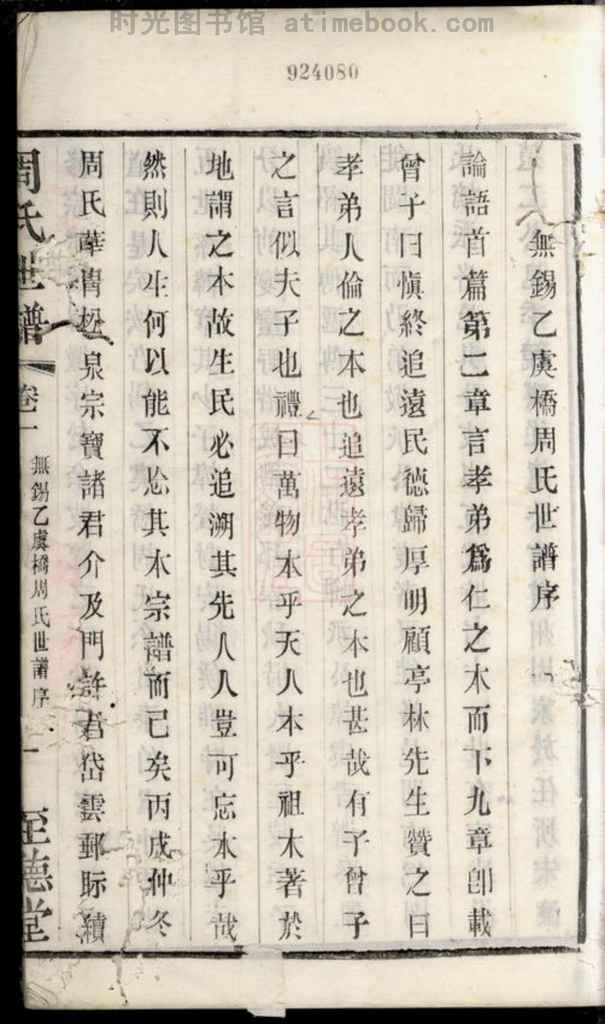 时光图书馆 atimebook.com
924080
無錫乙虞橋周氏世譜序
論語首篇第二章言孝弟爲仁之本而下九章卽載
曾子曰愼終追遠民德歸厚明顧亭林先生贊之曰
孝弟人倫之本也追遠孝弟之本也甚哉有子曾子
之言似夫子也禮曰萬物本乎天人本乎祖木著於
地謂之本故生民必追溯其先人人豈可忘本乎哉
然則人生何以能不忘其本宗譜而已矣丙戌仲冬
周氏華胄松泉宗寶諸君介及門許君岱雲郵際續
周氏世譜 卷一 無錫乙虞橋周氏世譜序 一 至德堂